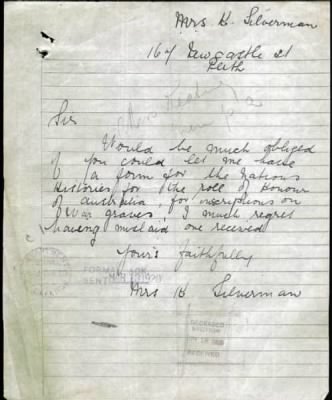 Mrs H. Silverman
167 Newcastle St
Perth
Sir
Would be much obliged
if you could let me have
a form for the various
Histories for the roll of Honour
of Australia, for inscriptions on
War graves, I much regret
having mislaid one received
Yours faithfully
Mrs H Silverman
FORM
SENT
DECEASED
SECTION
RECEIVED